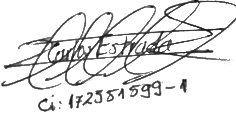 Carlos Estrada
ci: 172581599-1